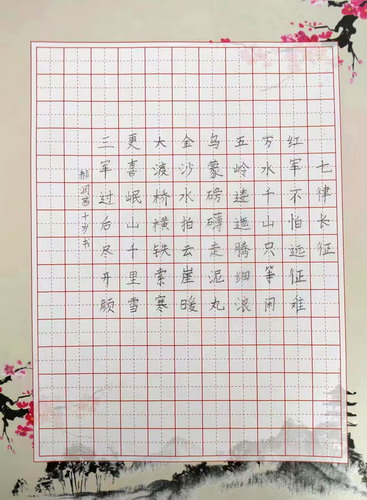 七律长征
红军不怕远征难
万水千山只等闲
五岭逶迤腾细浪
乌蒙磅礴走泥丸
金沙水拍云崖暖
大渡桥横铁索寒
更喜岷山千里雪
三军过后尽开颜
十岁书